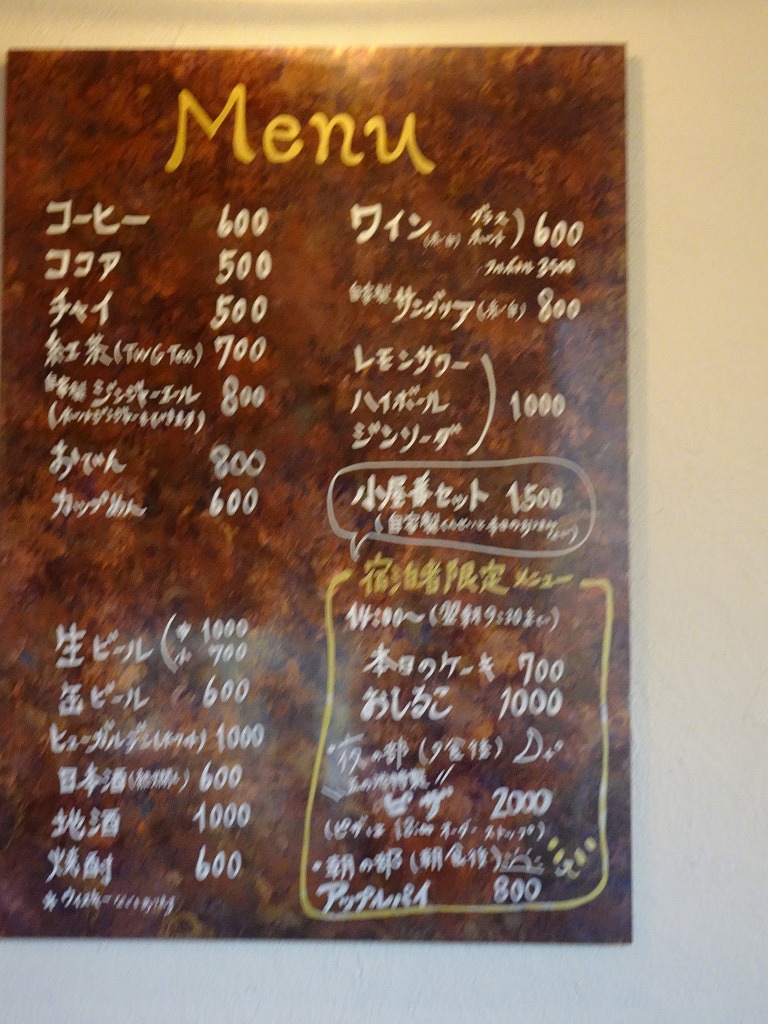 Menu
コーヒー 600
ココア 500
チャイ 500
紅茶(TWG Tea) 700
自家製 ジンジャーエール 800
おでん 800
カップめん 600
生ビール(大 1000
小 700
缶ビール 600
ヒューガルデン 1000
日本酒 600
地酒 1000
焼酎 600
ワイン(赤・白) グラス 600
フルボトル 3500
自家製 サングリア(赤・白) 800
レモンサワー
ハイボール 1000
ジンソーダ
小屋番セット 1500
(自家製
宿泊者限定メニュー
14:00〜(翌朝9:30まで)
本日のケーキ 700
おしるこ 1000
・夜の部(夕食後)
ピザ 2000
(ピザは オーダーストップ)
・朝の部(朝食後)
アップルパイ 800